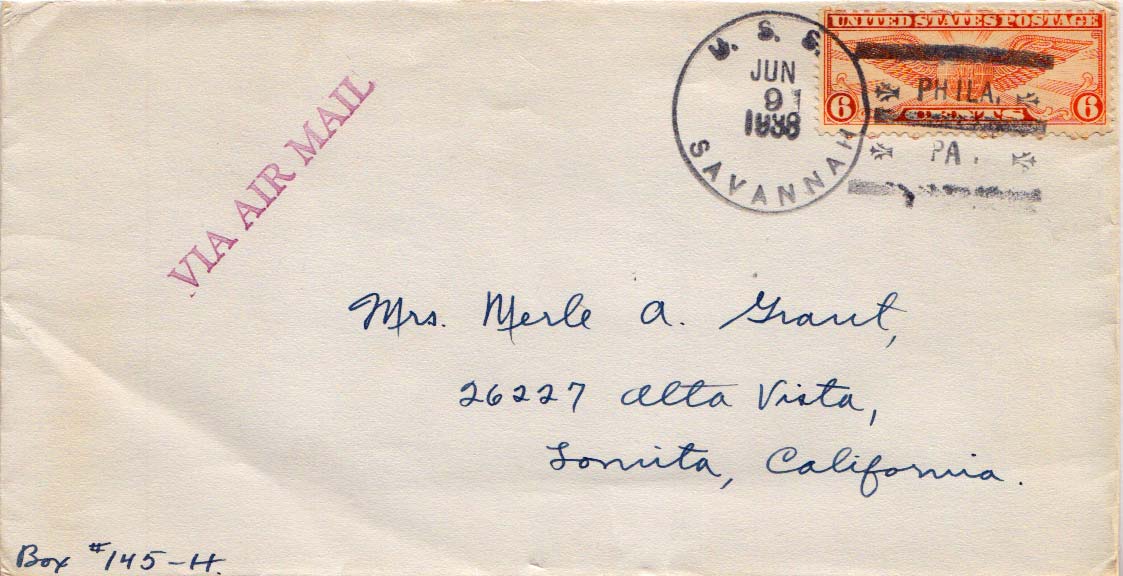 UNITED STATES POSTAGE
6 CENTS 6
U. S. S.
JUN
9
1938
SAVANNAH
PHILA.
PA.
VIA AIR MAIL
Mrs. Merle A. Grant,
26227 Alta Vista,
Lomita, California.
Box #145-H.